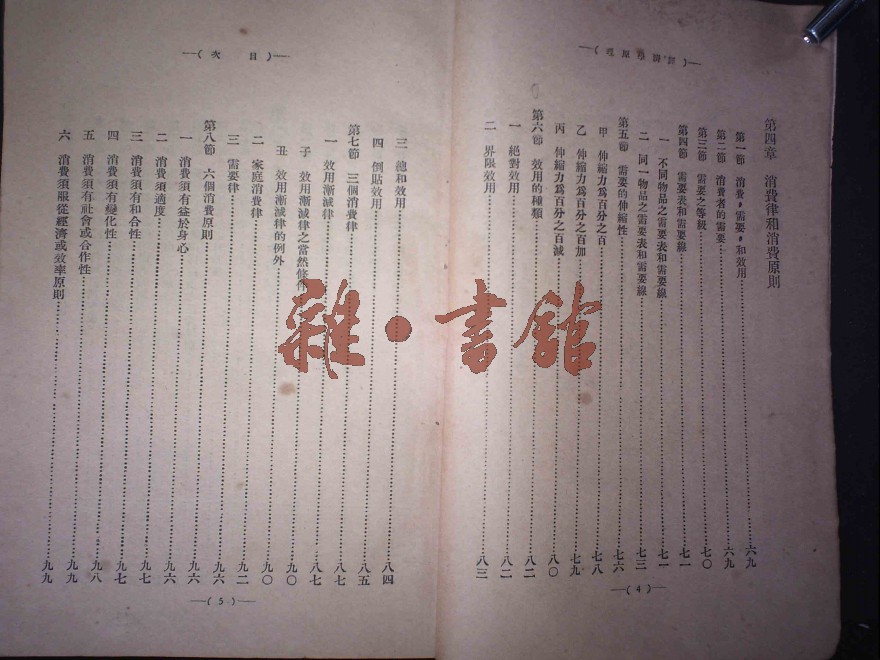 —(經濟學原理)—
第四章　消費律和消費原則
第一節　消費，需要，和效用……六九
第二節　消費者的需要……六九
第三節　需要之等級……七〇
第四節　需要表和需要線……七一
一　不同物品之需要表和需要線……七一
二　同一物品之需要表和需要線……七三
第五節　需要的伸縮性……七六
甲　伸縮力爲百分之百……七八
乙　伸縮力爲百分之百加……七九
丙　伸縮力爲百分之百減……八〇
第六節　效用的種類……八二
一　絕對效用……八二
二　界限效用……八三
—(4)—
—(目次)—
三　總和效用……八四
四　倒貼效用……八五
第七節　三個消費律……八七
一　效用漸減律……八七
子　效用漸減律之當然條件……九〇
丑　效用漸減律的例外……九〇
二　家庭消費律……九二
三　需要律……
第八節　六個消費原則……九六
一　消費須有益於身心……九六
二　消費須適度……九七
三　消費須有和合性……九七
四　消費須有變化性……九八
五　消費須有社會或合作性……九九
六　消費須服從經濟或效率原則……九九
—(5)—
雜·書館